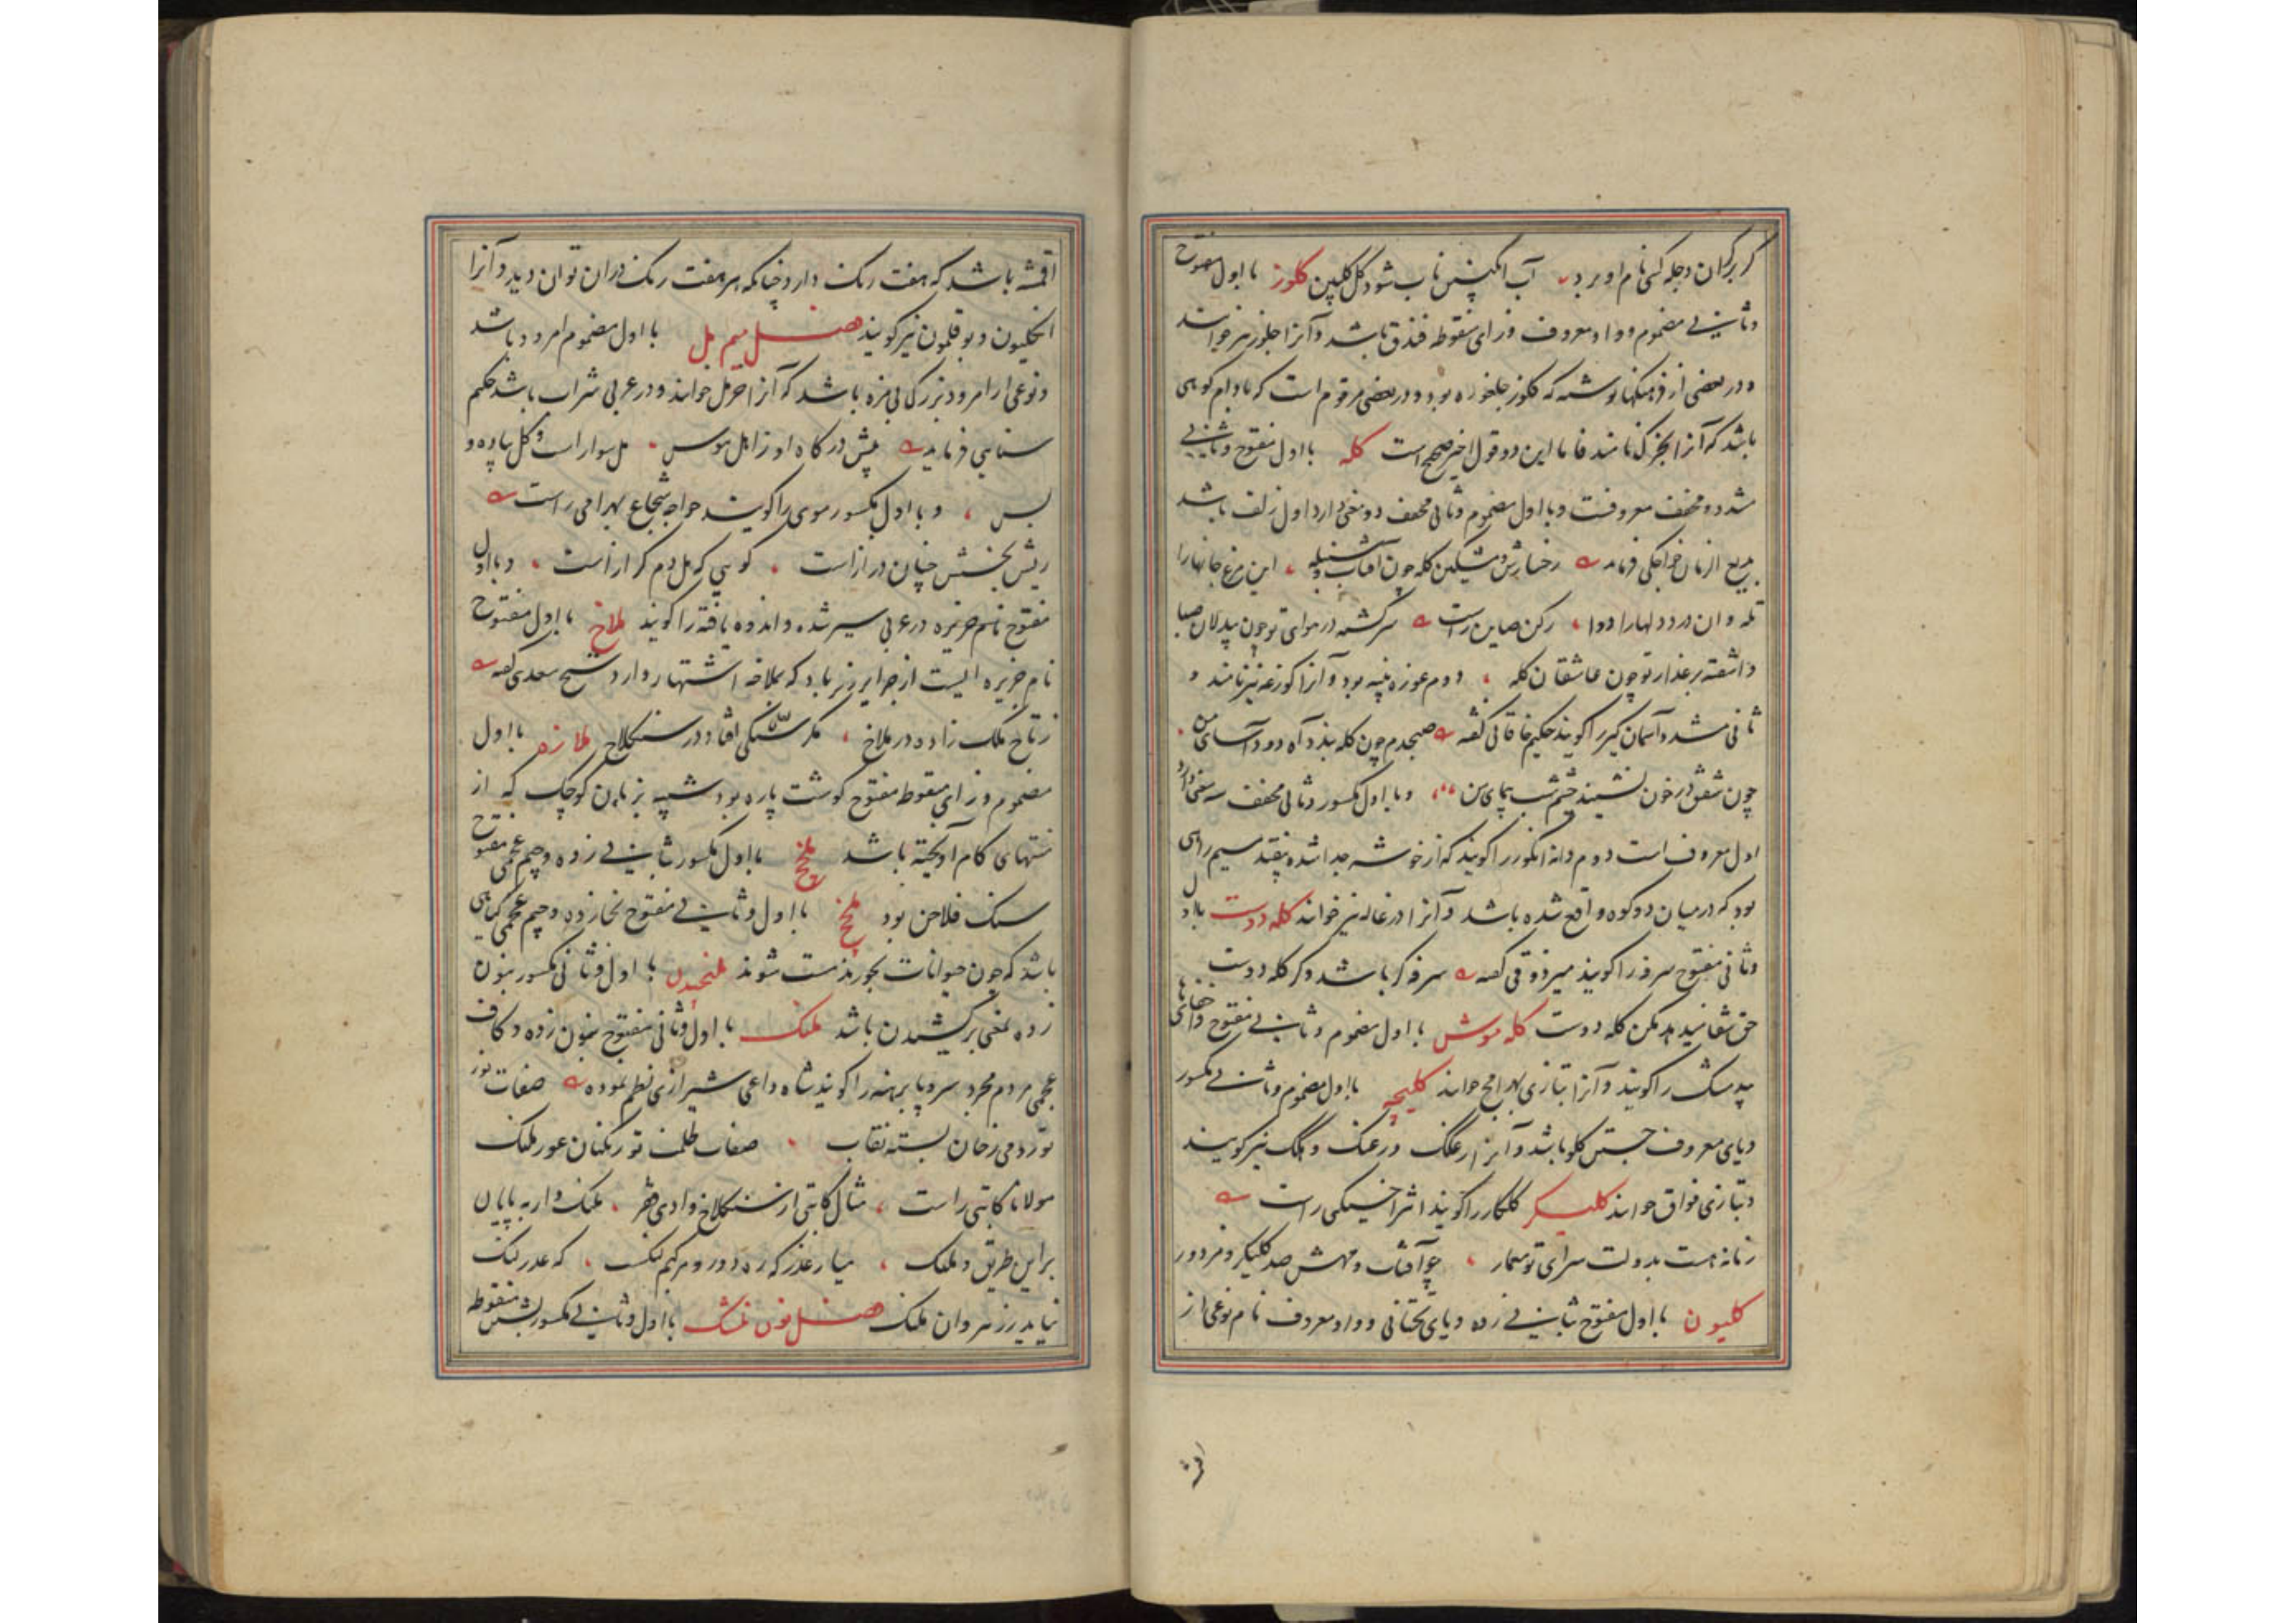 گر برکران دجله کسی نام او برد آب انگبین ناب شود گل گلبین کلوز با اول مفتوح
وثانی مضموم و واو معروف و زای منقوطه فندق باشد و آنرا جلوز نیز خوانند
و در بعضی از فرهنگها نوشته که کلوز جلغوزه بود و در بعضی مرقوم است که بادام کوهی
باشد که آنرا بخرک نامند فاما این دو قول اخیر صحیح است کله با اول مفتوح وثانی
مشدد و مخفف معروفست و با اول مضموم وثانی مخفف دو معنی دارد اول زلف باشد
بدیع الزمان خواجکی فرماید رخسارش و مشکین کله چون آفتاب و سنبله این مرغ جانها را
تله و ان درد دلها را دوا رکن صاین راست سرگشته در هوای تو چون بیدلان صبا
و آشفته بر عذار تو چون عاشقان کله دوم غوزه پنبه بود و آنرا کوزغه نیز نامند و
ثانی مشدد آسمان کیر را گویند حکیم خاقانی گفته صبحدم چون کله بندد آه دود آسای من
چون شفق در خون نشیند چشم شب پیمای من و با اول مکسور وثانی مخفف سه معنی دارد
اول معروف است دوم دانه انگور را گویند که از خوشه جدا شده بیفتد سیم راهی
بود که درمیان دو کوه واقع شده باشد و آنرا در غاله نیز خوانند کله دوست با اول
وثانی مفتوح سرفه را گویند میر ذوقی گفته سرفه گر باشد و گر کله دوست
حق شفا نیدهد مکن کله دوست کله موش با اول مضموم وثانی مفتوح و اخفای ها
بیدمشک را گویند و آنرا بتازی بهرامج خوانند کلیچه با اول مضموم وثانی مکسور
و یای معروف جستن گلو باشد و آنرا زغنک و هکک نیز گویند
و بتازی فواق خوانند کلیکر گلکار را گویند اثیر اخسیکتی راست
زمانه هست بدولت سرای تو معمار چو آفتاب و مهش صد کلیکر و مزدور
کلیون با اول مفتوح بثانی زده و یای تحتانی و واو معروف نام نوعی از
اقمشه
اقمشه باشد که هفت رنگ دارد چنانکه هر هفت رنگ دران توان دید و آنرا
انکلیون و بوقلمون نیز گویند فصل میم مل با اول مضموم امرود باشد
و نوعی از امرود بزرگ بی مزه باشد که آنرا خرمل خوانند و در عربی شراب باشد حکیم
سنایی فرماید پیش درگاه او ز اهل هوس مل سوار است و گل پیاده و
بس و با اول مکسور موی را گویند خواجه شجاع بهرامی راست
ریش بخشش چنان دراز است گویی که مل دم گراز است و با اول
مفتوح نام جزیره در عربی سیر شده و اندوه یافته را گویند ملاخ با اول مفتوح
نام جزیره ایست از جزایر زیرباد که بملاخه اشتهار دارد شیخ سعدی گفته
ز تاج ملک زاده در ملاخ مگر سنگی افتاد در سنگلاخ ملازه با اول
مضموم و زای منقوط مفتوح گوشت پاره بود شبیه بزبان کوچک که از
منتهای کام آویخته باشد ملخج با اول مکسور بثانی زده و جیم عجمی مفتوح
سنگ فلاخن بود ملخج با اول وثانی مفتوح بخا زده و جیم عجمی گیاهی
باشد که چون حیوانات بخورند مست شوند ملنجیدن با اول وثانی مکسور بنون
زده بمعنی برکشیدن باشد ملنک با اول وثانی مفتوح بنون زده و کاف
عجمی مردم مجرد سر و پا برهنه را گویند شاه داعی شیرازی نظم نموده صفات نور
تو رومی رخان بسته نقاب صفات ظلمت تو زنگیان عور ملنک
مولانا کاتبی راست مثال کاتبی از سنگلاخ وادی فقر ملنک وار به پایان
بر این طریق و ملنک میار عذر که ره دور و مرکبم لنگ است که عذر لنگ
نیاید ز رهروان ملنک فصل نون نلشک با اول وثانی مکسور بشین منقوطه